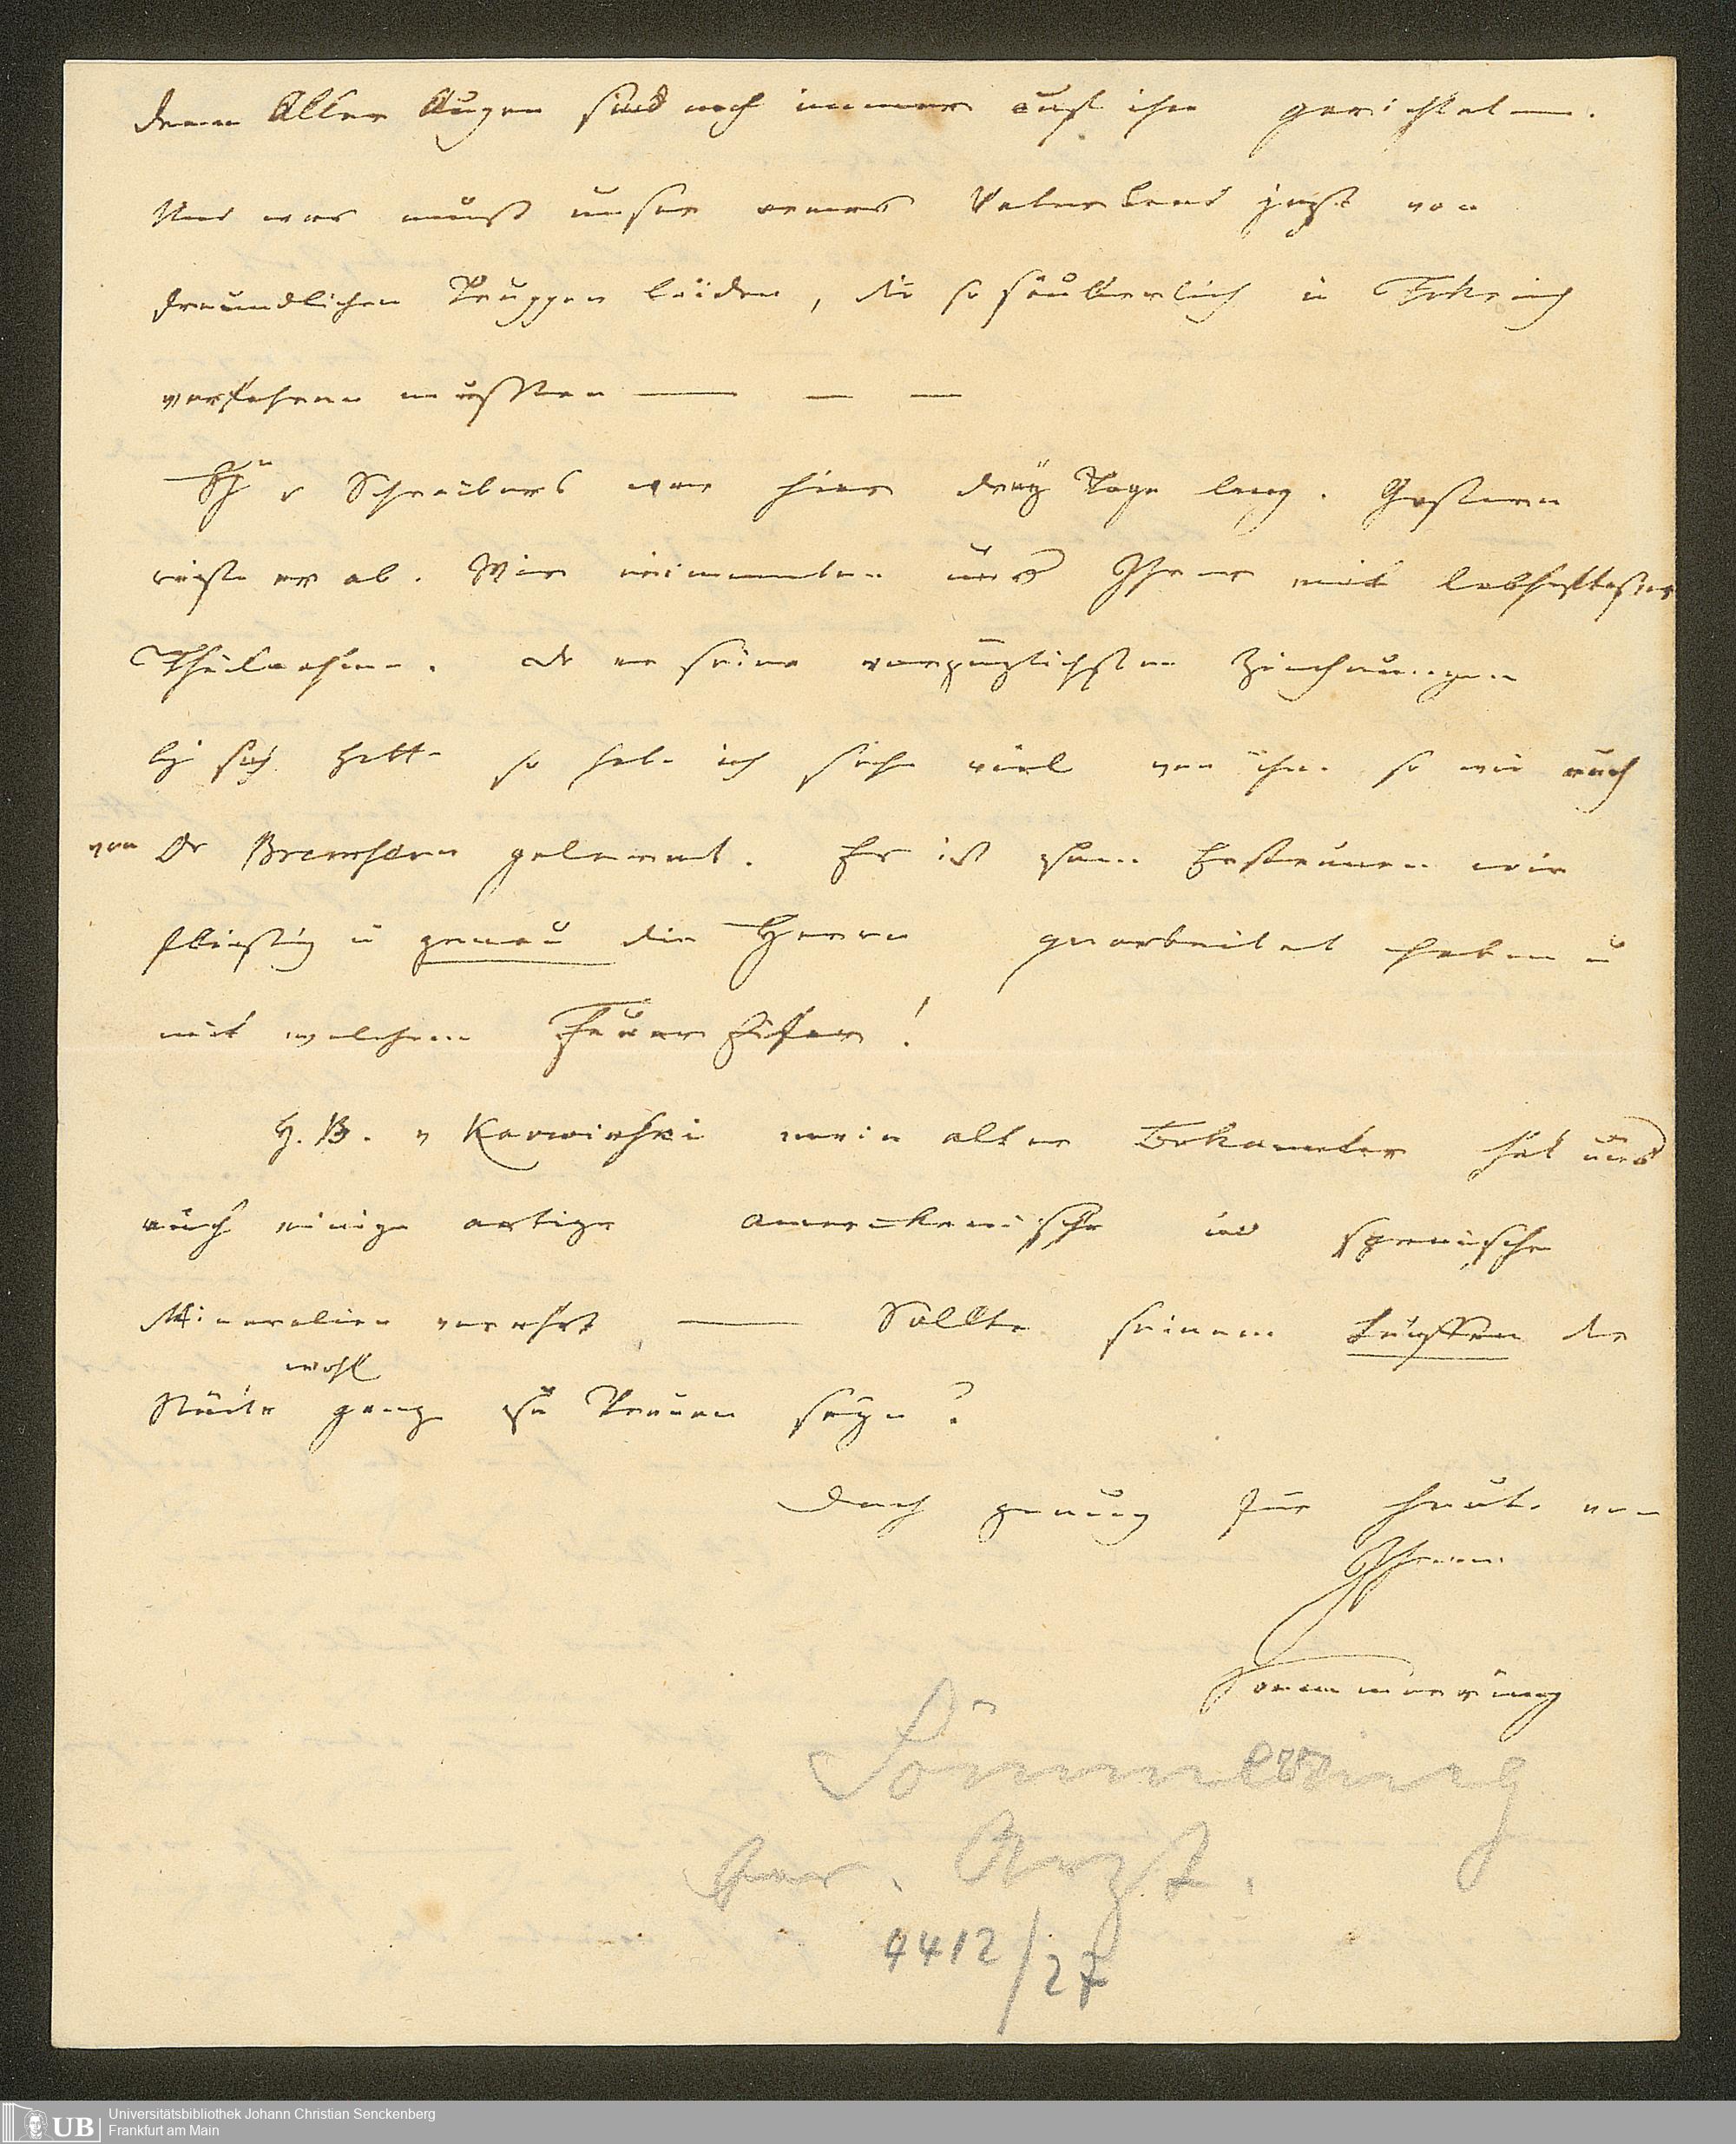 denn Aller Augen sind noch immer auf ihn gerichtet.
Und was muß unser armes Vaterland jezt von
freundlichen Truppen leiden, die so säuberlich in
verfahren mußten — — —
Hr v Schreibers war hier drey Tage lang. Gestern
reiste er ab. Wir erinnerten uns Ihrer mit lebhaftester
Theilnahme. Da er seine vorzüglichsten Zeichnungen
bey sich hatte so habe ich sehr viel von ihm so wie auch
von Dr Bremsern gelernt. Es ist zum Erstaunen wie
fleißig u genau die Herrn gearbeitet haben u
mit welchem Feuer Eifer!
H. B. v Karwinski mein alter Bekannter hat uns
auch einige artige amerikanische und spanische
Mineralien verehrt — Sollte seinem die
wohl
Seite ganz zu trauen seyn?
Doch genug für heute von
Ihrem
Soemmerring
Sömmerring
Arzt.
4412/27
UB
Universitätsbibliothek Johann Christian Senckenberg
Frankfurt am Main